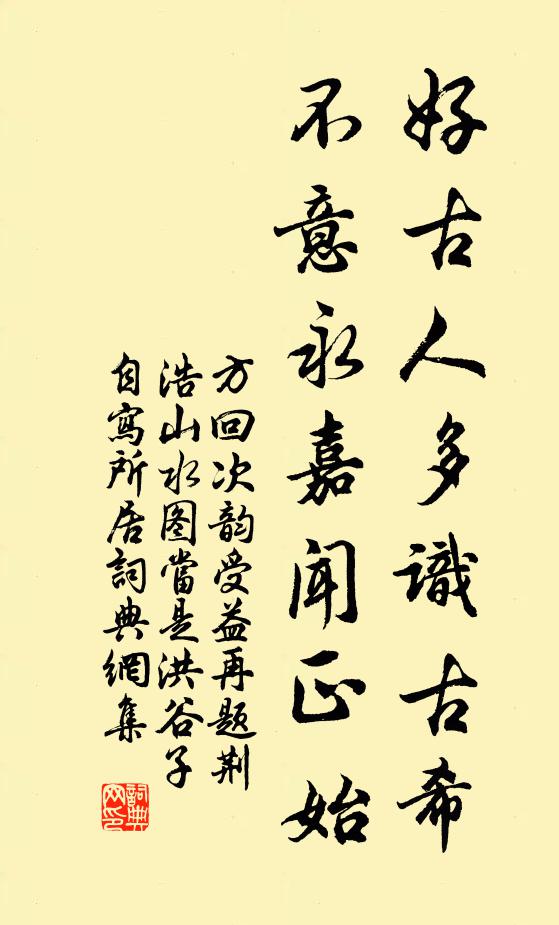 好古人多識古希
不意永嘉聞正始
方回次韵受益再题荆
浩山水图當是洪谷子
自寫所居詞典網集
詞典网印